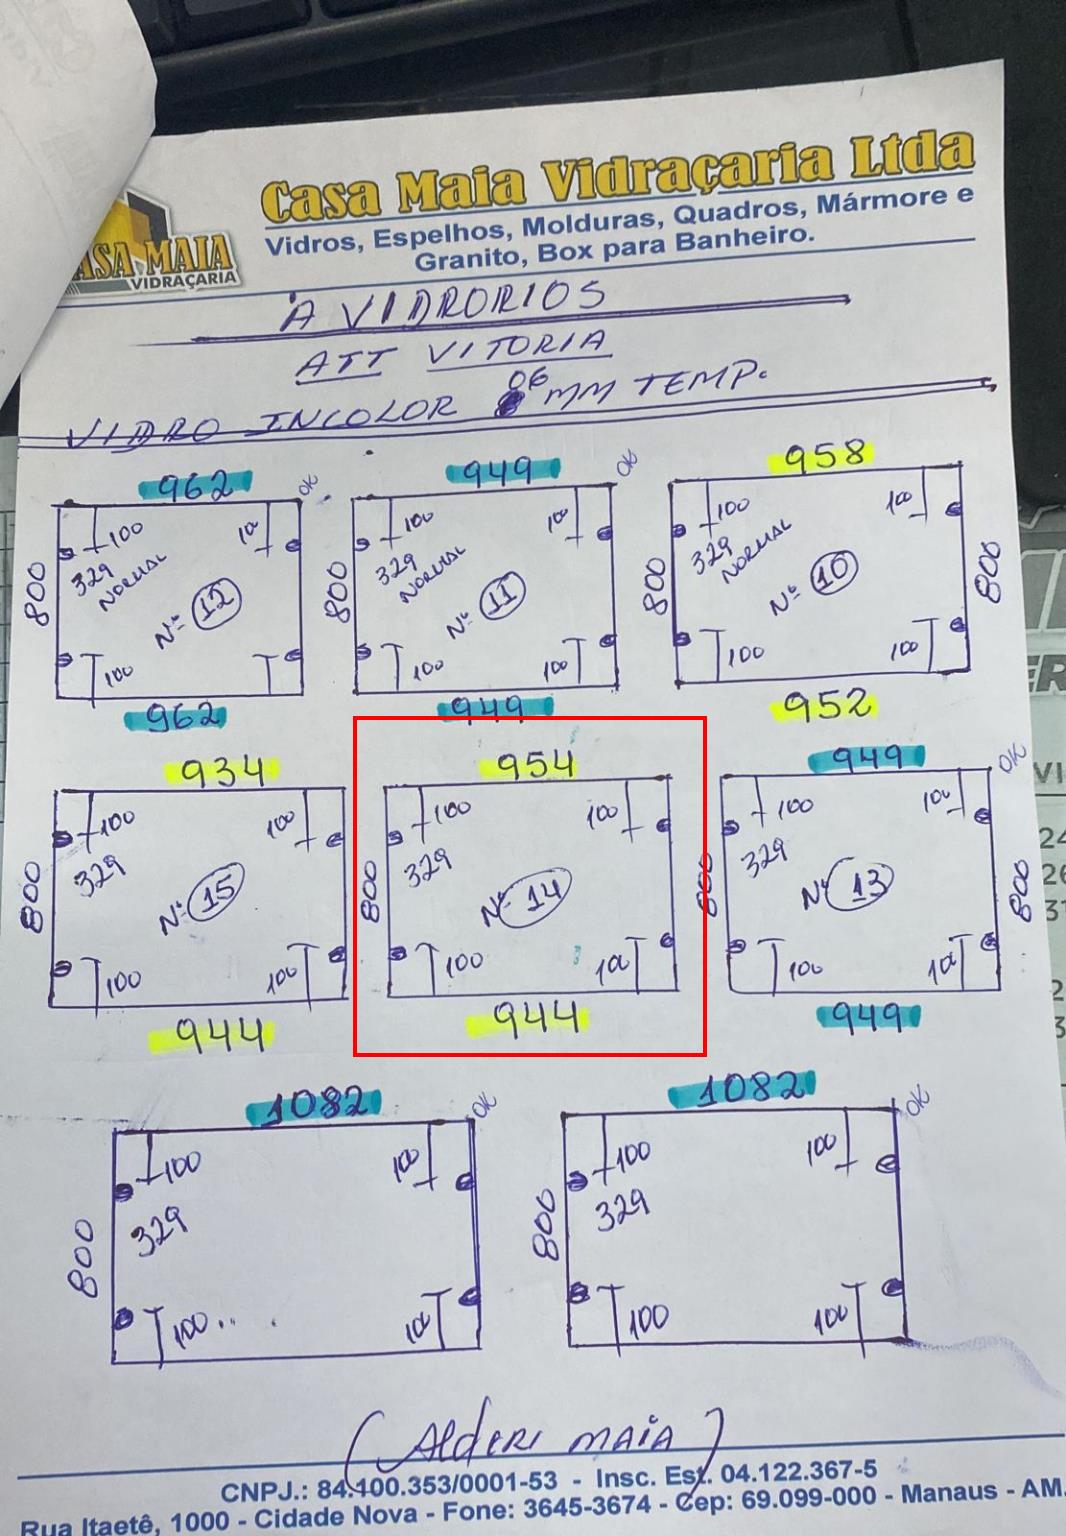 Casa Maia Vidraçaria Ltda
Vidros, Espelhos, Molduras, Quadros, Mármore e
Granito, Box para Banheiro.
ASA MAIA
VIDRAÇARIA
A VIDRORIOS
ATT VITORIA
VIDRO INCOLOR 06 MM TEMP.
962 OK
800
100 100
329
NORMAL
Nº 12
100
962
949 OK
800
100 100
329
NORMAL
Nº 11
100 100
949
958
800 800
100 100
329
NORMAL
Nº 10
100 100
952
934
800
100 100
329
Nº 15
100 100
944
954
800
100 100
329
Nº 14
100 100
944
949 OK
800 800
100 100
329
Nº 13
100 100
949
1082 OK
800
100 100
329
100 100
1082 OK
800
100 100
329
100 100
(Alderi MAIA)
CNPJ.: 84.100.353/0001-53 - Insc. Est. 04.122.367-5
Rua Itaetê, 1000 - Cidade Nova - Fone: 3645-3674 - Cep: 69.099-000 - Manaus - AM.